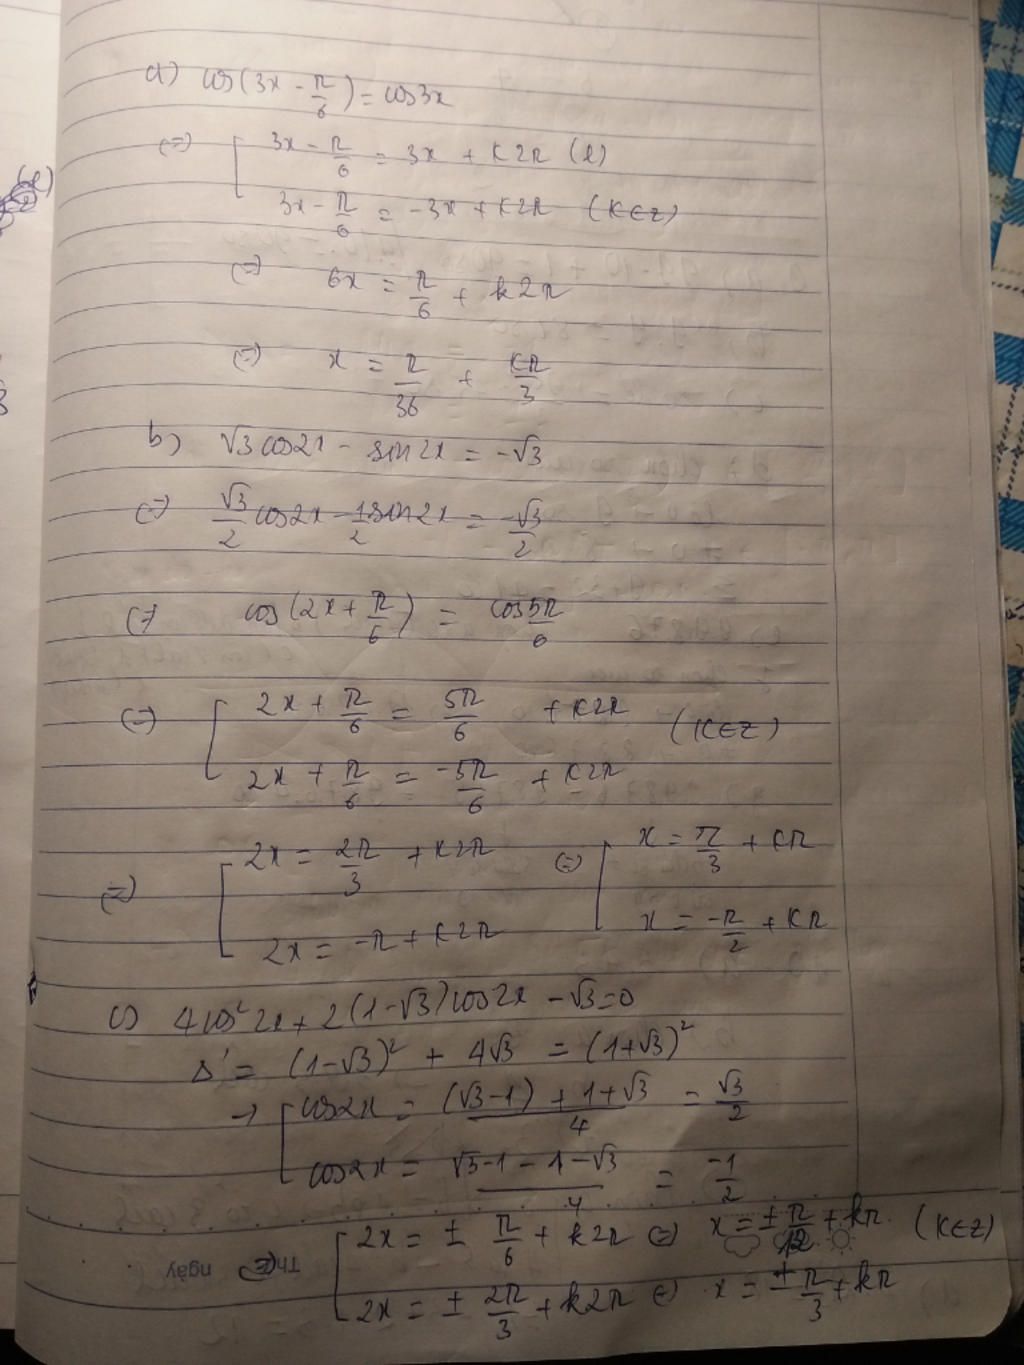 a) cos(3x - π/6) = cos3x
(=) [ 3x - π/6 = 3x + k2π (l)
3x - π/6 = -3x + k2π (k∈Z)
(=) 6x = π/6 + k2π
(=) x = π/36 + kπ/3
b) √3 cos2x - sin2x = -√3
(=) √3/2 cos2x - 1/2 sin2x = -√3/2
(=) cos(2x + π/6) = cos5π/6
(=) [ 2x + π/6 = 5π/6 + k2π (k∈Z)
2x + π/6 = -5π/6 + k2π
(=) [ 2x = 2π/3 + k2π (=) [ x = π/3 + kπ
2x = -π + k2π x = -π/2 + kπ
c) 4cos²2x + 2(1-√3)cos2x - √3 = 0
Δ' = (1-√3)² + 4√3 = (1+√3)²
→ [ cos2x = (√3-1) + 1+√3/4 = √3/2
cos2x = √3-1-1-√3/4 = -1/2
[ 2x = ± π/6 + k2π (=) x = ± π/12 + kπ (k∈Z)
2x = ± 2π/3 + k2π (=) x = ± π/3 + kπ
ngày